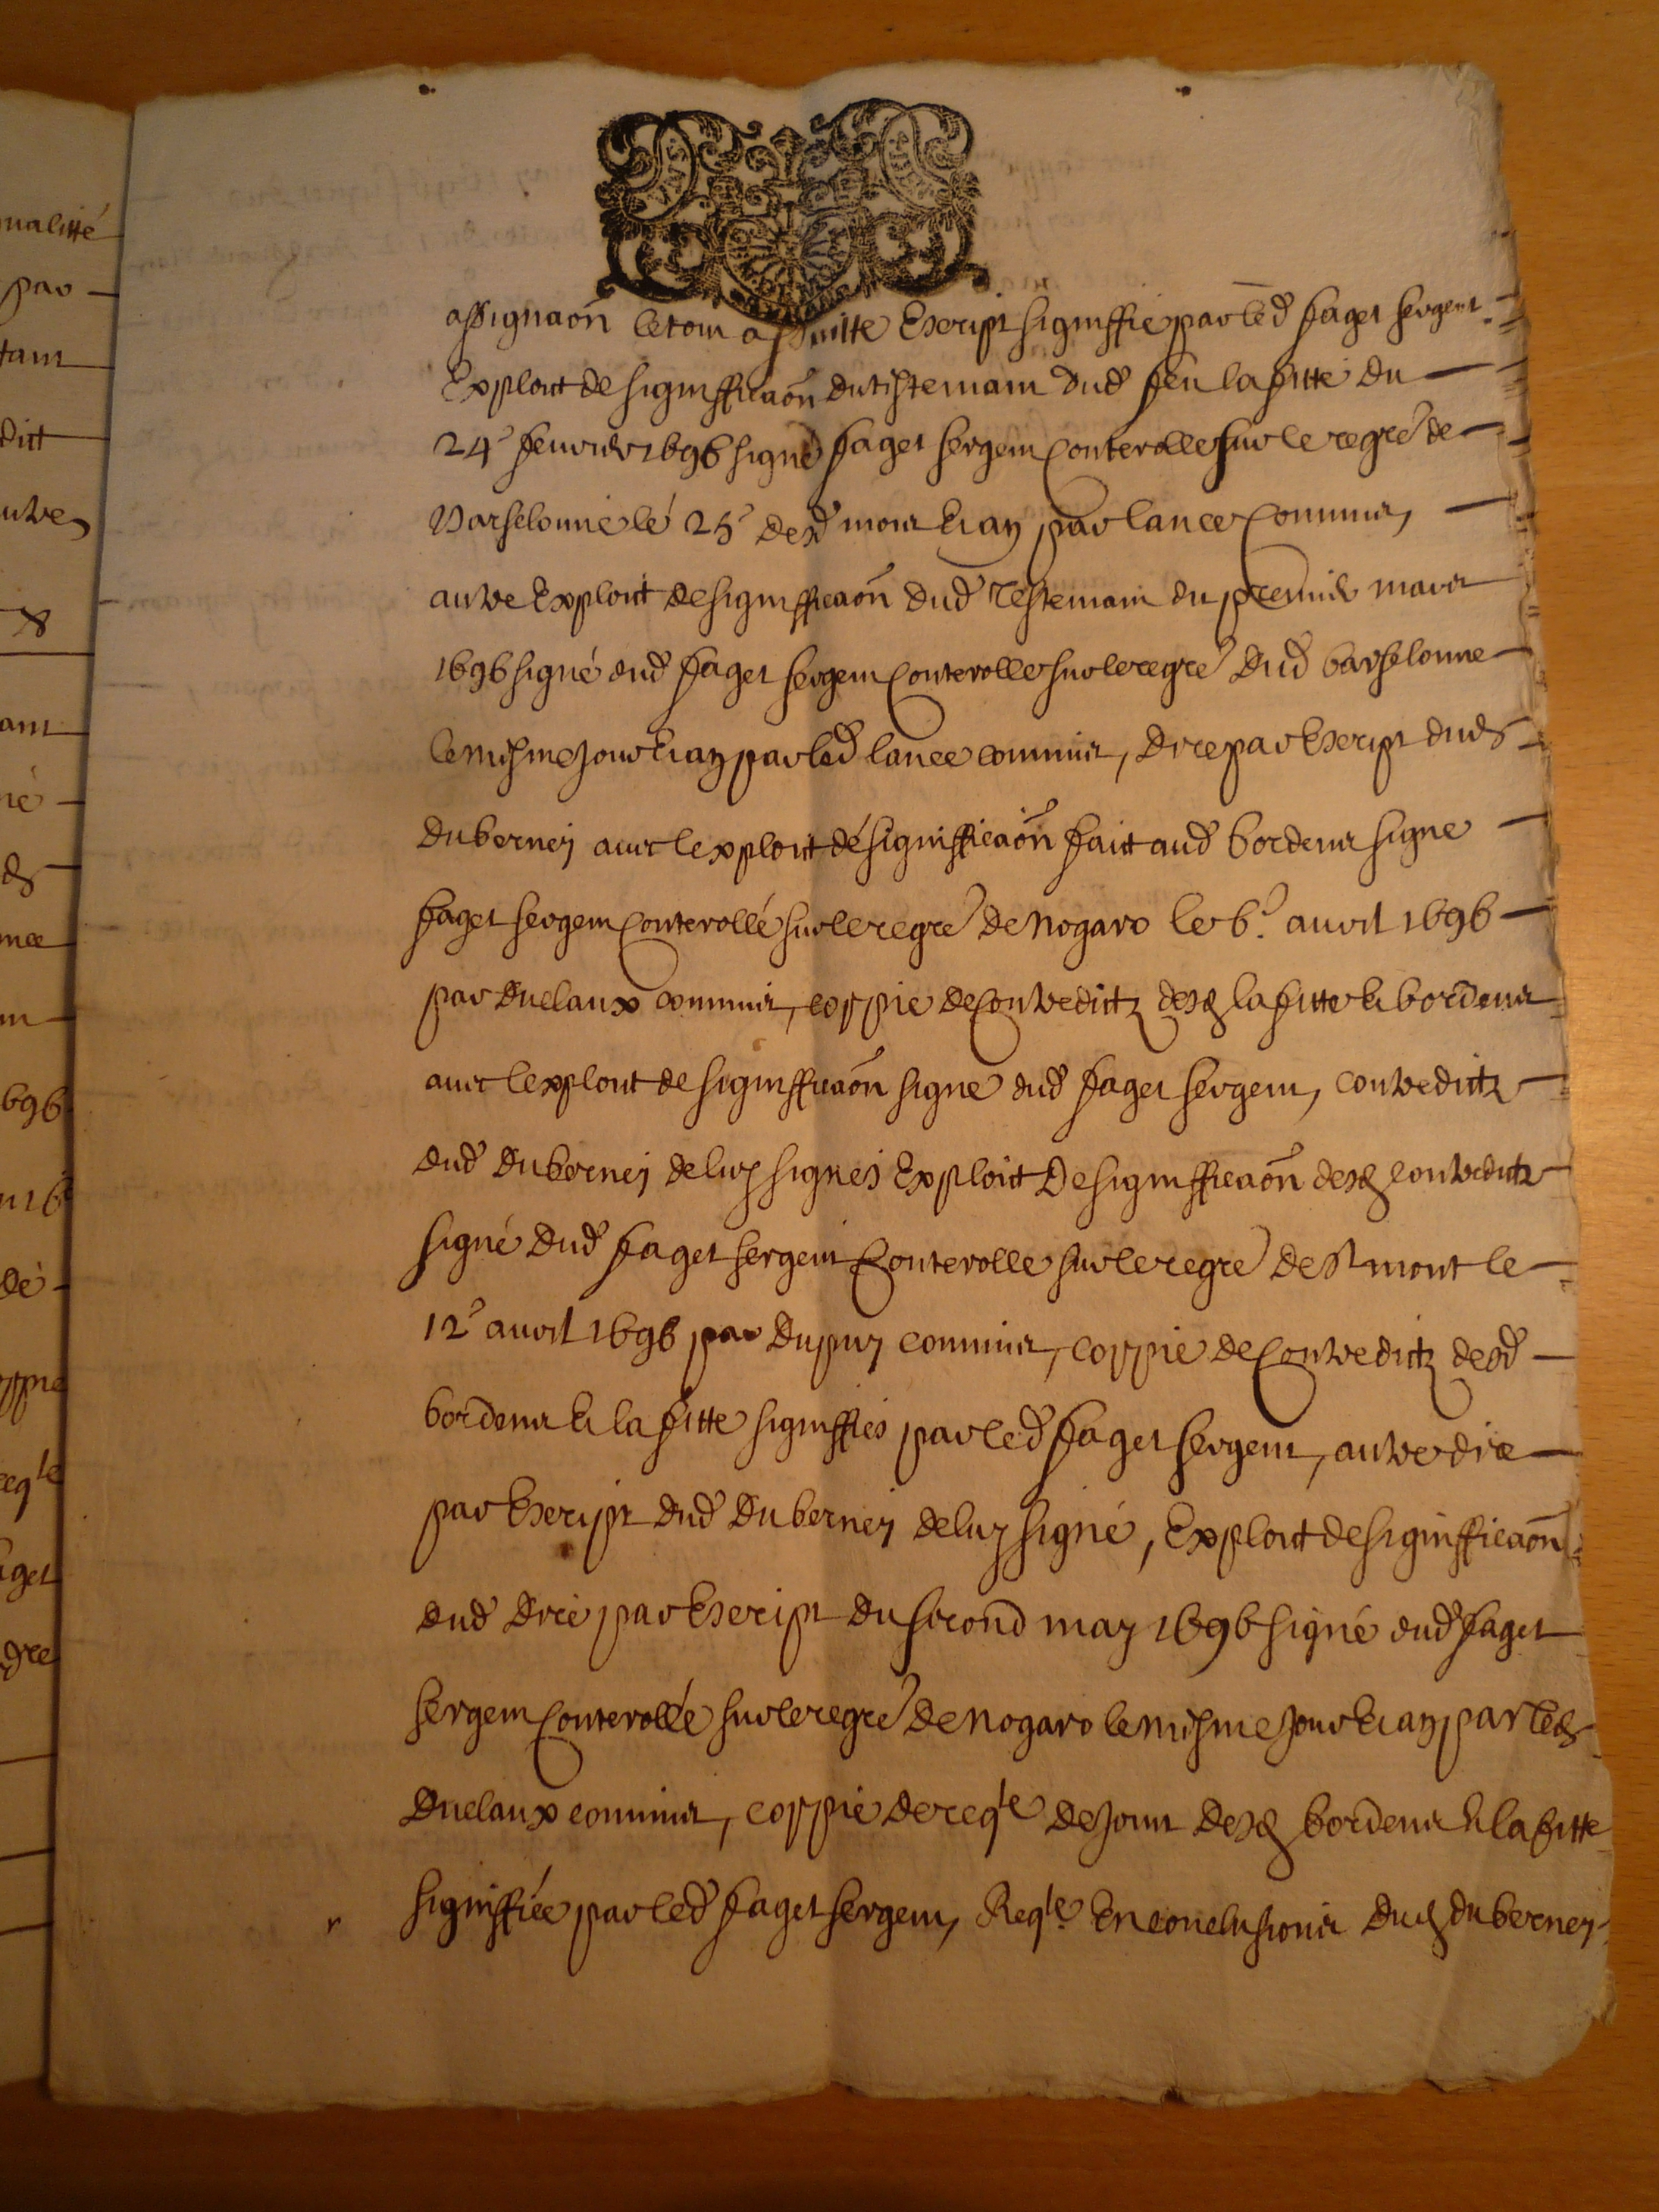 nalitté
par
tant
dict
ant
696
dé
get
assignaon letout a suitte Escript signiffié par led faget sergent
Exploict de signifficaon du testemam dud feu lafitte du
24e feuvrier 1696 signé faget sergem conterollé sur le regre de
Barselonne le 25e desd mois et an par lance commis,
autre Exploict de signifficaon dud Testemam du premier mars
1696 signé dud faget sergem conterollé sur le regre dud barselonne
le mesme jour et an par led lance commis, dire par Escript dud
duberney avec lexploict de signifficaon faict aud bordenis signe
faget sergem conterollé sur le regre de nogaro le 6e. avril 1696
par duclaux commis, coppie de contredictz desd lafitte et bordenis
avec lexploict de signifficaon signe dud faget sergem, contredictz
dud duberney de luy signés Exploict de signifficaon desd contredictz
signé dud faget sergent conterollé sur le regre de St mont le
12e avril 1696 par dupuy commis, coppie de contredictz desd
bordenis et lafitte signiffiés par led faget sergent, autre dire
par Escript dud duberney de luy signé, Exploict de signifficaon
dud dire par Escript du second may 1696 signé dud faget
sergem conterollé sur le regre de nogaro le mesme jour et an par led
duclaux commis, coppie de reqte de joint desd bordenis et lafitte
signiffiée par led faget sergem, Reqte. En conclusions dud duberney